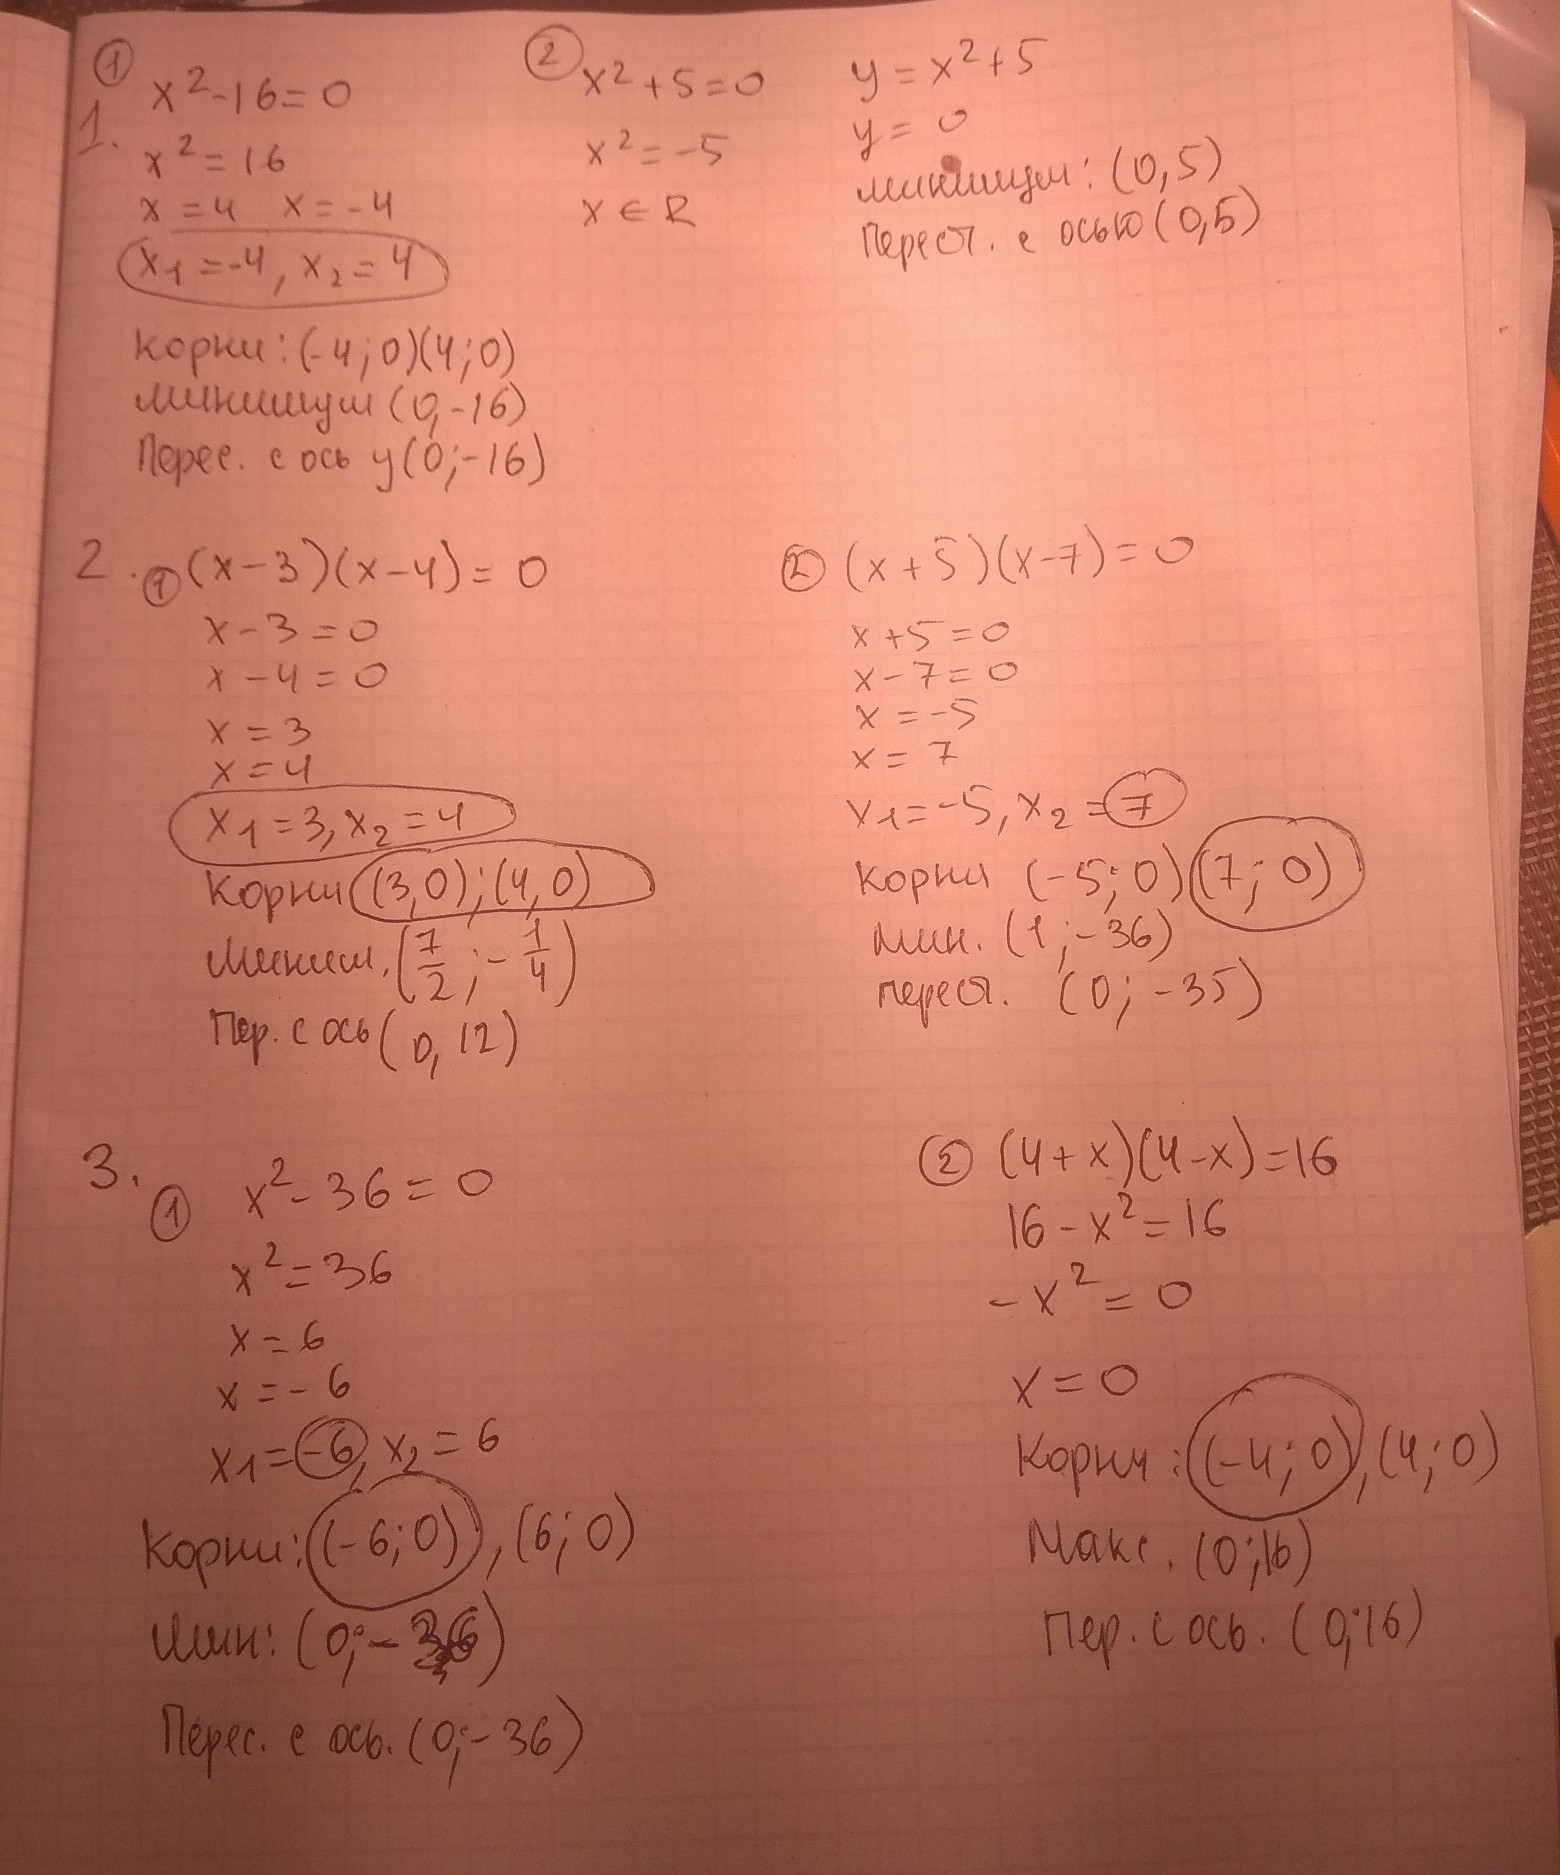 ①
1.
x² - 16 = 0
x² = 16
x = 4 x = -4
x₁ = -4, x₂ = 4
Корни: (-4; 0)(4; 0)
минимум (0, -16)
Перес. с ось y (0; -16)
②
x² + 5 = 0
x² = -5
x ∈ R
y = x² + 5
y = 0
минимум: (0, 5)
Перест. с осью (0, 5)
2. ① (x - 3)(x - 4) = 0
x - 3 = 0
x - 4 = 0
x = 3
x = 4
x₁ = 3, x₂ = 4
Корни (3, 0); (4, 0)
Миним. (7/2; -1/4)
Пер. с ось (0, 12)
② (x + 5)(x - 7) = 0
x + 5 = 0
x - 7 = 0
x = -5
x = 7
x₁ = -5, x₂ = 7
Корни (-5; 0) (7; 0)
мин. (1; -36)
перест. (0; -35)
3.
① x² - 36 = 0
x² = 36
x = 6
x = -6
x₁ = -6, x₂ = 6
Корни: (-6; 0), (6; 0)
Мин: (0; -36)
Перес. с ось. (0; -36)
② (4 + x)(4 - x) = 16
16 - x² = 16
-x² = 0
x = 0
Корни: (-4; 0), (4; 0)
Макс. (0; 16)
Пер. с ось. (0; 16)